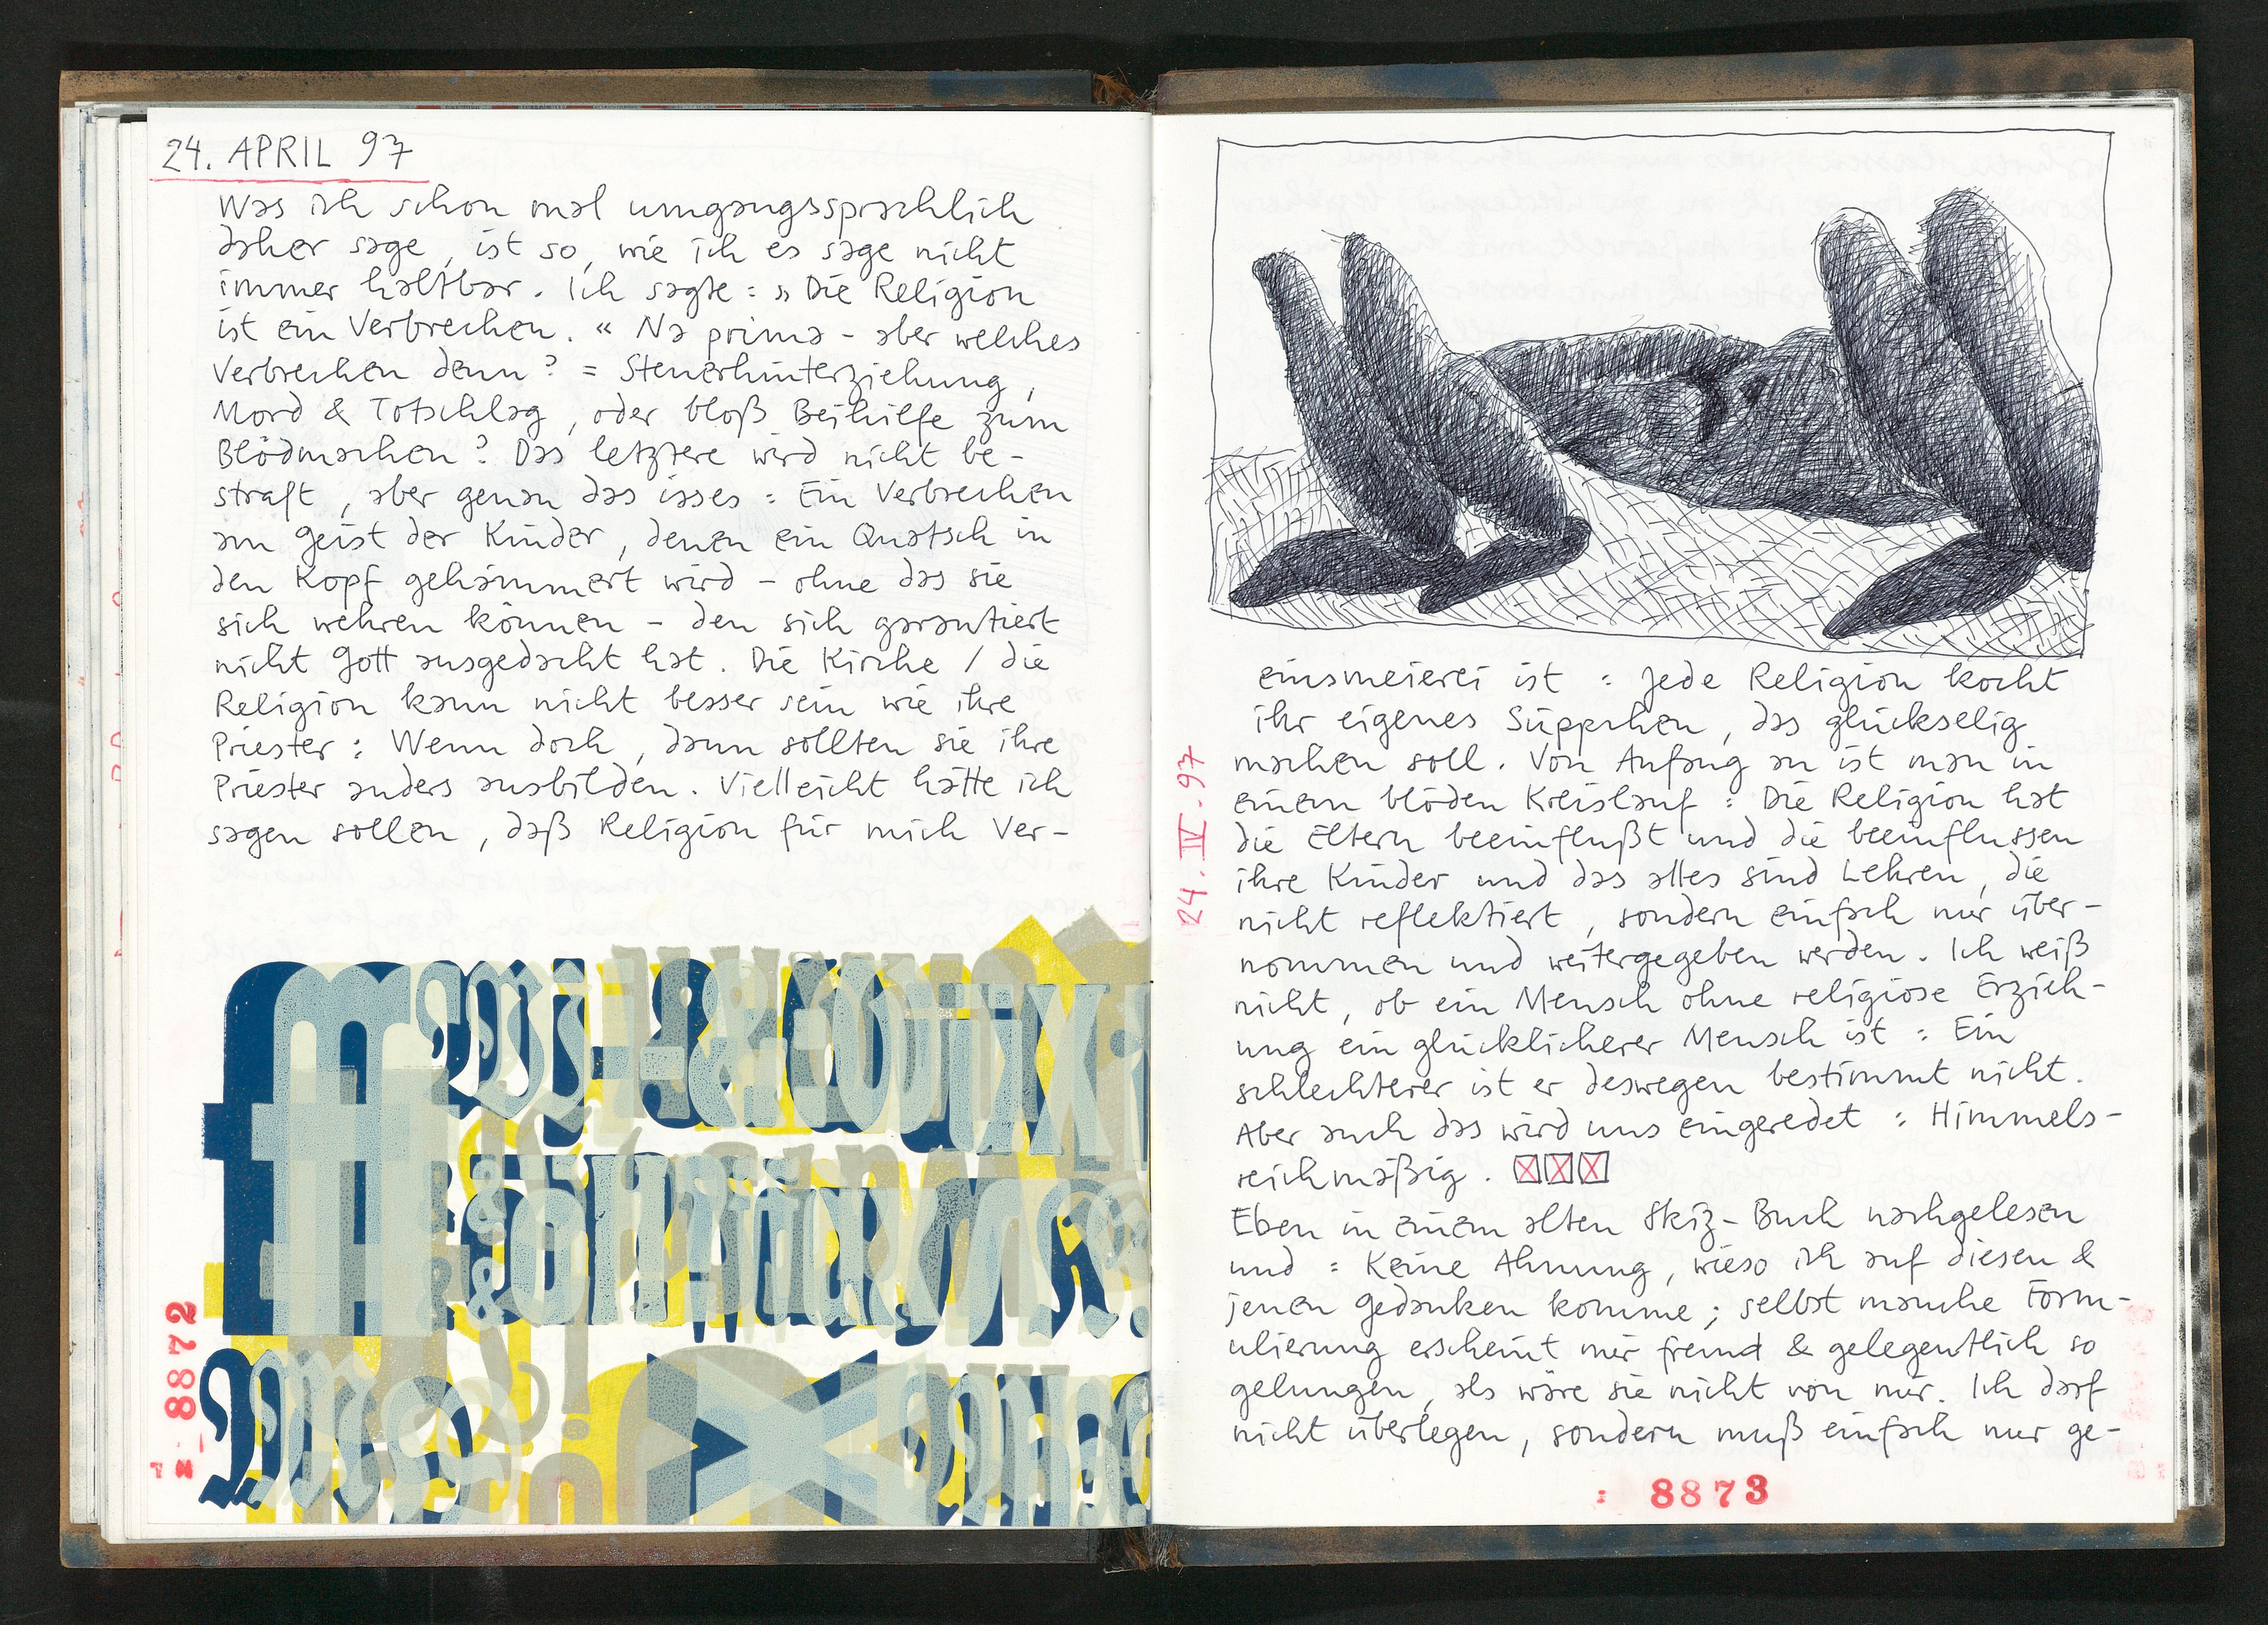 24. APRIL 97
Was ich schon mal umgangssprachlich
daher sage, ist so, wie ich es sage nicht
immer haltbar. Ich sagte: »Die Religion
ist ein Verbrechen.« Na prima - aber welches
Verbrechen denn? = Steuerhinterziehung,
Mord & Totschlag, oder bloß Beihilfe zum
Blödmachen? Das letztere wird nicht be-
straft, aber genau das isses: Ein Verbrechen
am Geist der Kinder, denen ein Quatsch in
den Kopf gehämmert wird - ohne das sie
sich wehren können - den sich garantiert
nicht Gott ausgedacht hat. Die Kirche / die
Religion kann nicht besser sein wie ihre
Priester: Wenn doch, dann sollten sie ihre
Priester anders ausbilden. Vielleicht hätte ich
sagen sollen, daß Religion für mich Ver-
8872
einsmeierei ist: Jede Religion kocht
ihr eigenes Süppchen, das glückselig
machen soll. Von Anfang an ist man in
einem blöden Kreislauf: Die Religion hat
die Eltern beeinflußt und die beeinflussen
ihre Kinder und das alles sind Lehren, die
nicht reflektiert, sondern einfach nur über-
nommen und weitergegeben werden. Ich weiß
nicht, ob ein Mensch ohne religiöse Erzieh-
ung ein glücklicherer Mensch ist: Ein
schlechterer ist er deswegen bestimmt nicht.
Aber auch das wird uns eingeredet: Himmels-
reichmäßig.
Eben in einem alten Skiz-Buch nachgelesen
und: Keine Ahnung, wieso ich auf diesen &
jenen Gedanken komme; selbst manche Form-
ulierung erscheint mir fremd & gelegentlich so
gelungen, als wäre sie nicht von mir. Ich darf
nicht überlegen, sondern muß einfach nur ge-
24. IV. 97
: 8873